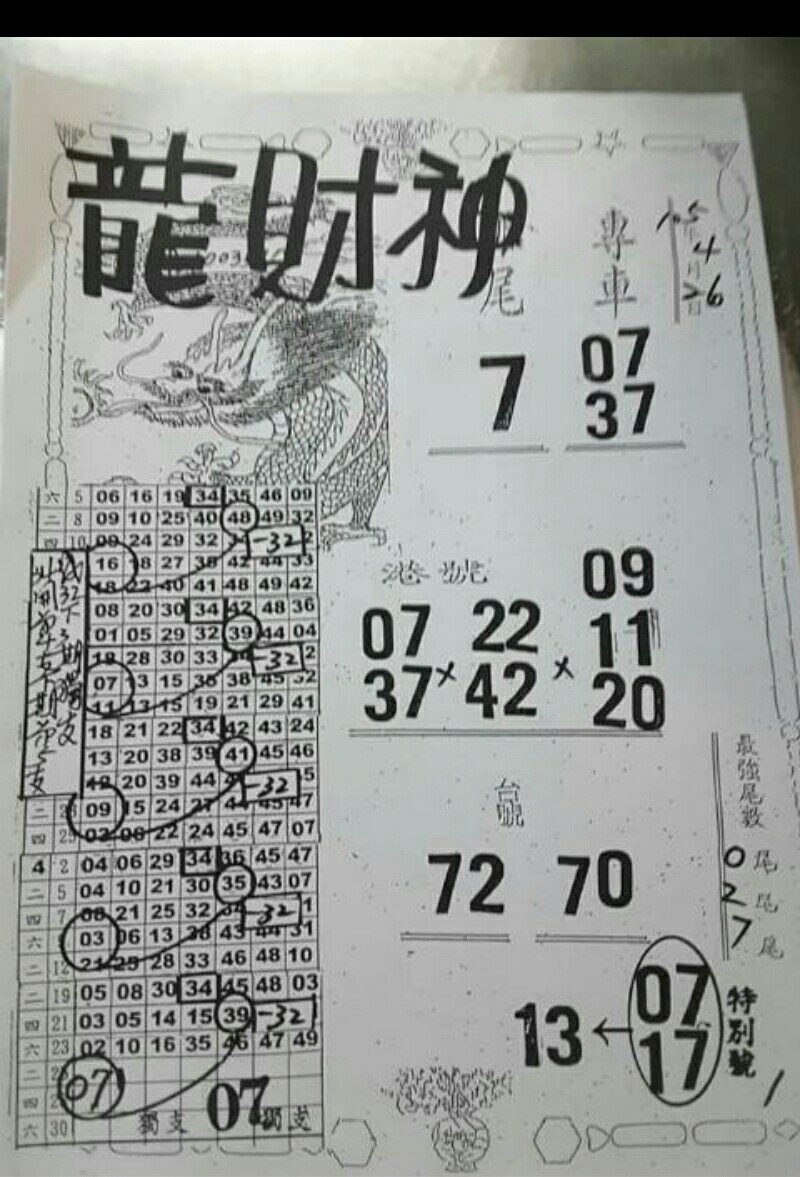 龍財神
尾
專車
105年4月26日
7
07
37
港號
07 22 09
37 × 42 × 11
20
台號
72 70
最強尾數
0尾
2尾
7尾
13 ← 07
17
特別號
六 5 06 16 19 34 35 46 09
二 8 09 10 25 40 48 49 32
四 10 09 24 29 32 -32
16 18 27 38 42 44 33
18 22 40 41 48 49 42
08 20 30 34 42 48 36
01 05 29 32 39 44 04
28 30 33 -32
07 13 15 38 45
11 13 15 19 21 29 41
18 21 22 34 42 43 24
13 20 38 39 41 45 46
20 39 44 -32
09 15 24 45 47
四 02 08 22 24 45 47 07
4 2 04 06 29 34 36 45 47
二 5 04 10 21 30 35 43 07
四 7 08 21 25 32 -32
六 03 06 13 38 43 44 31
二 12 21 25 28 33 46 48 10
二 19 05 08 30 34 45 48 03
四 21 03 05 14 15 39 -32
六 23 02 10 16 35 46 47 49
二
四 07
六 30 獨支 07 獨支